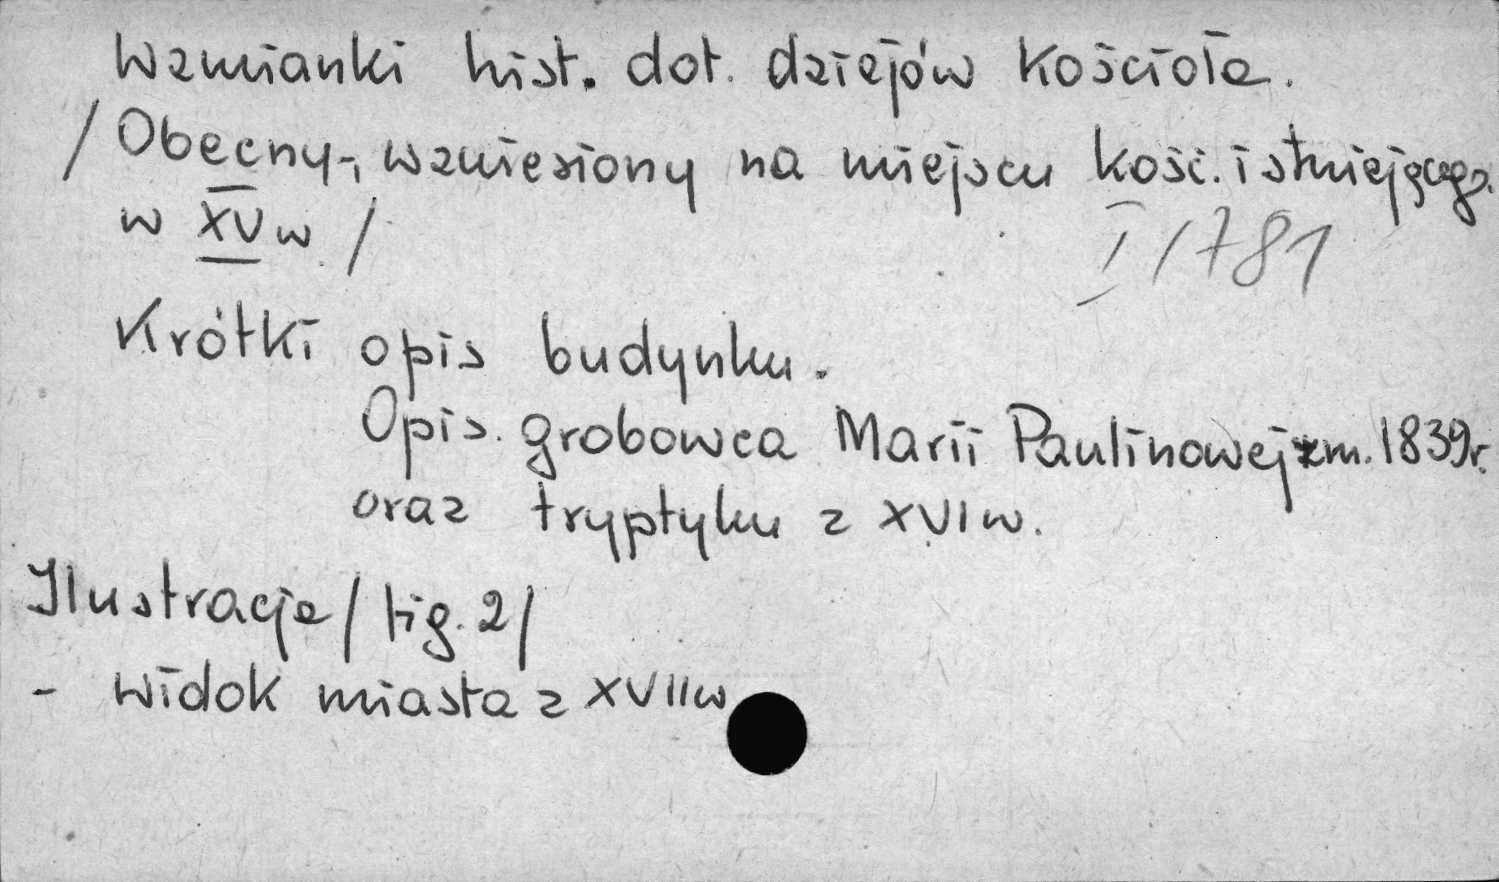 Wzmianki hist. dot. dziejów kościoła.
/Obecny-, wzniesiony na miejscu kość. istniejącego
w XV w /
I/781
Krótki opis budynku.
Opis. grobowca Marii Paulinowej zm. 1839r.
oraz tryptyku z XVI w.
Ilustracje / fig. 2/
- widok miasta z XVII w